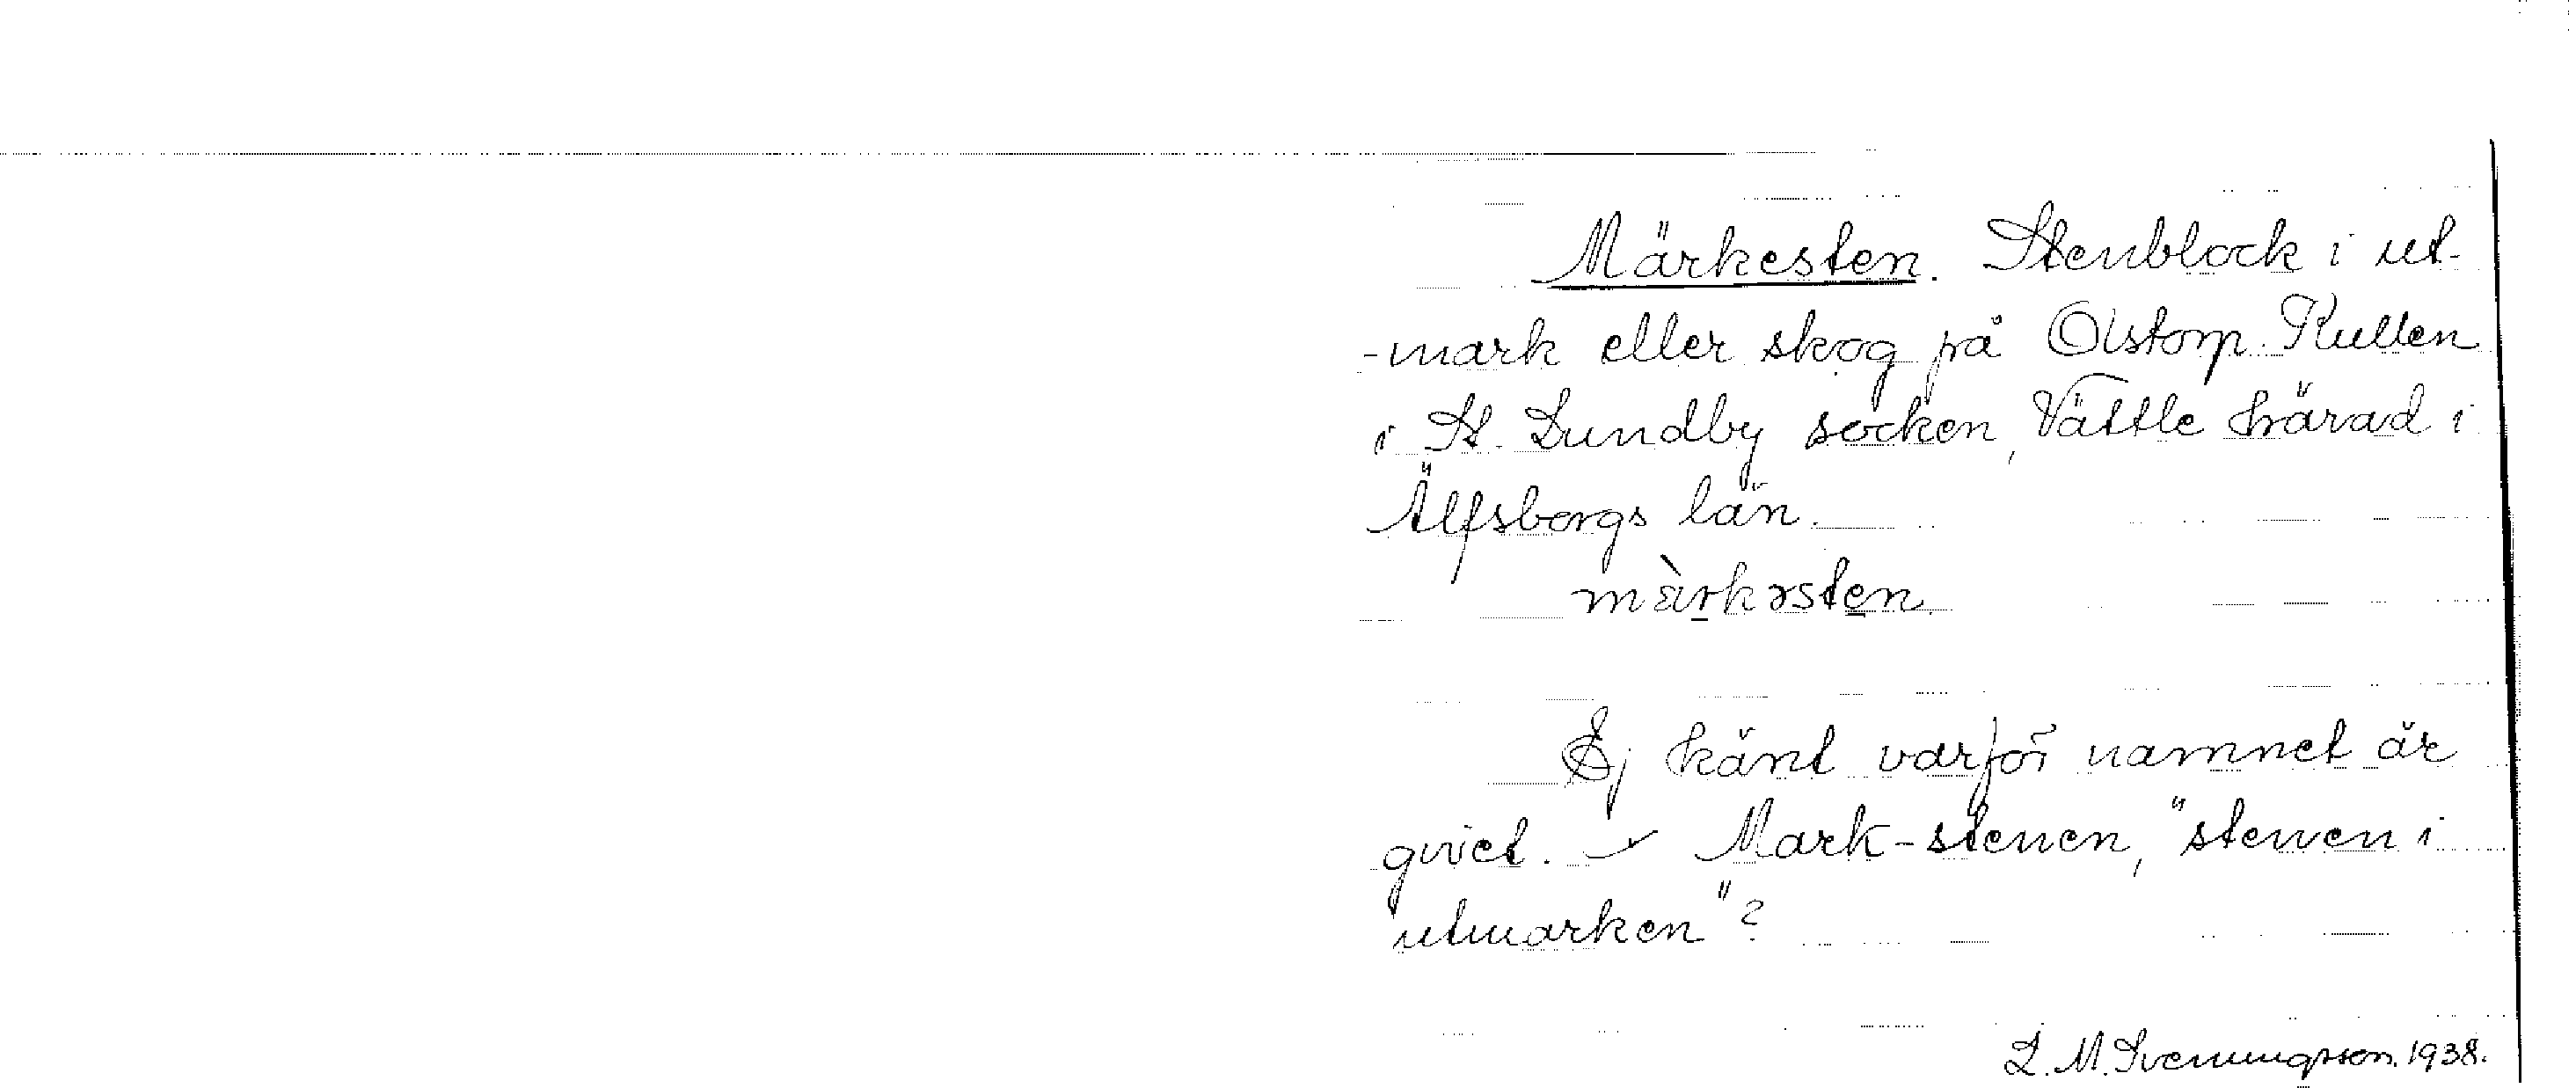 Märkesten. Stenblock i ut-
-mark eller skog på Olstorp. Kullen
i St. Lundby socken, Vättle härad i
Älfsborgs län.
mὰrkəsten.
Ej känt varför namnet är
givet. - Mark-stenen, "stenen i
utmarken"?
L. M. Svenungsson. 1938.